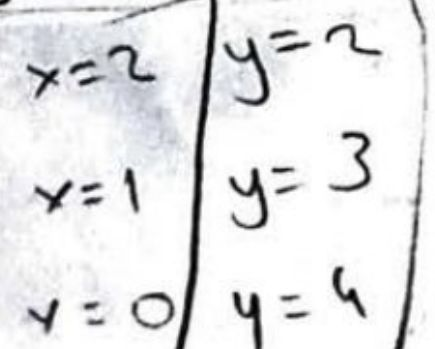 x=2 y=2
x=1 y=3
x=0 y=4